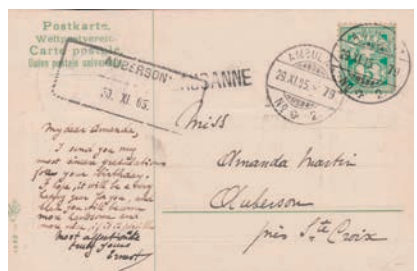 Postkarte.
Weltpostverein.
Carte postale
Union postale universelle
AUBERSON
30. XI. 05.
LAUSANNE
AMBULANT
29.XI.05.- 79
No 2
My dear Amanda,
I send you my
most sincere gratulations
for your birthday.
I hope, it will be a very
happy year for you, and
that you will become
more handsome and
more
most affectionate
truly yours
Ernest
Miss
Amanda Martin
Auberson
près Ste Croix